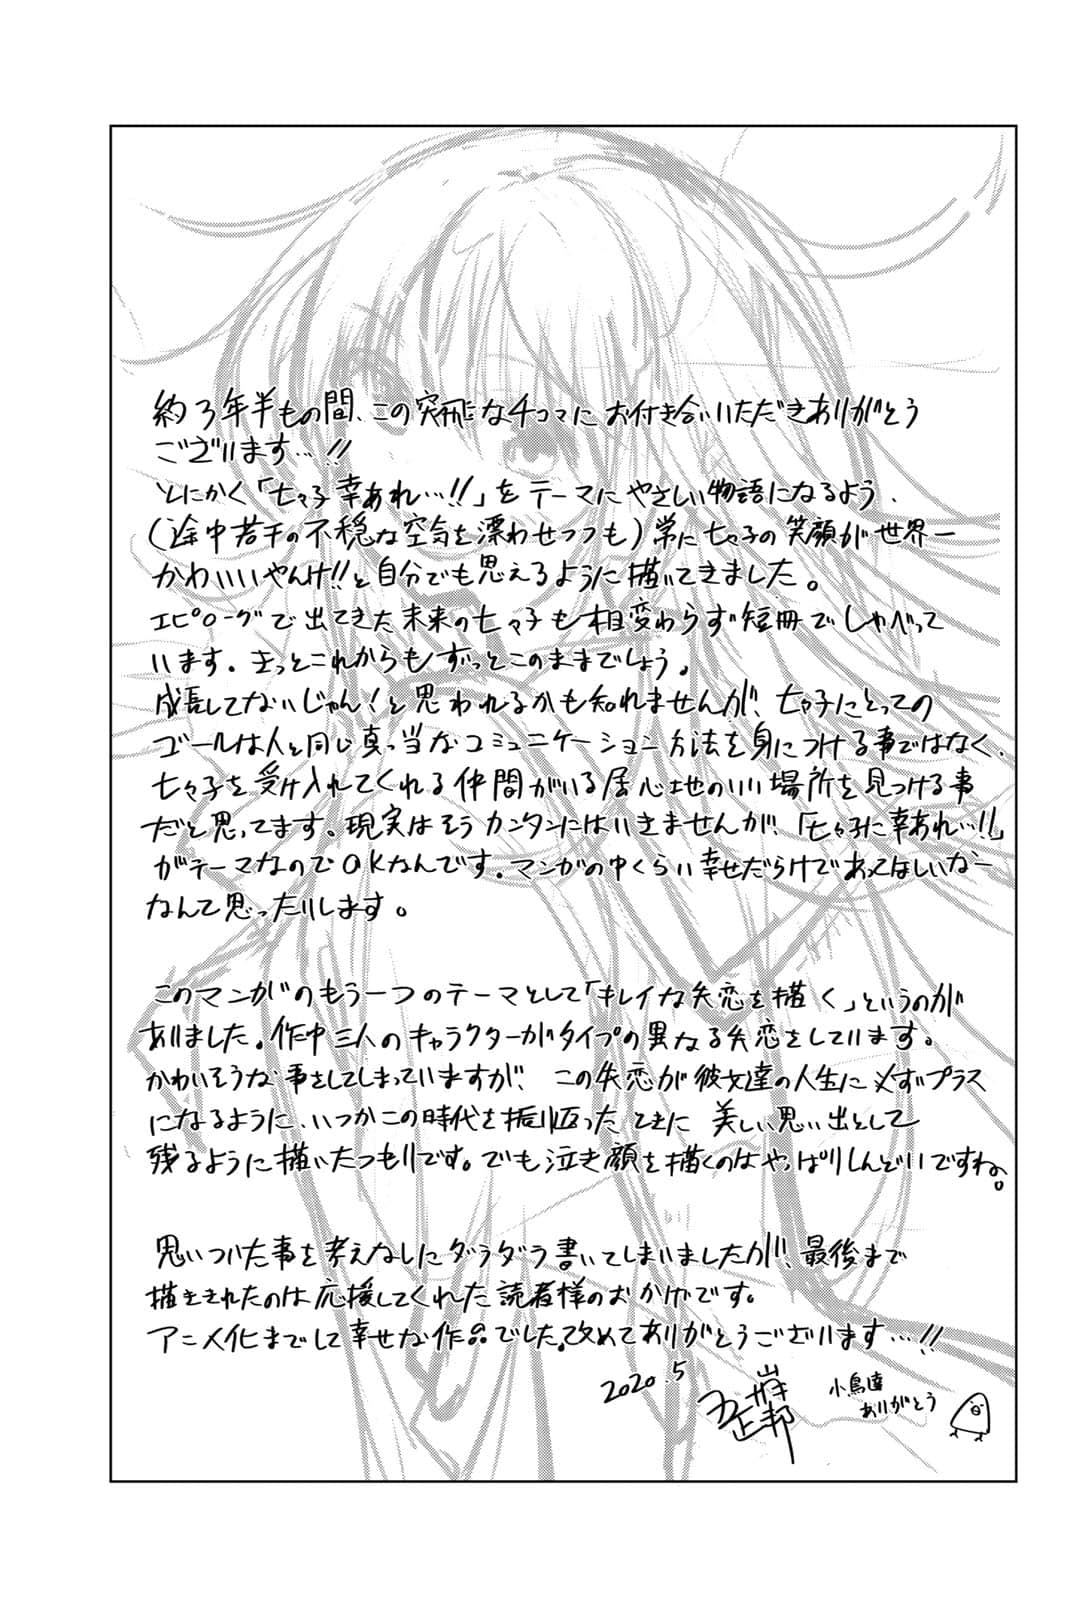 約3年半もの間、この突飛な4コマにお付き合いいただきありがとう
ございます…!!
とにかく「七々子幸あれ…!!」をテーマにやさしい物語になるよう、
(途中若干の不穏な空気を漂わせつつも)常に七々子の笑顔が世界一
かわいいやんけ!!と自分でも思えるように描いてきました。
エピローグで出てきた未来の七々子も相変わらず短冊でしゃべって
います。きっとこれからもずっとこのままでしょう。
成長してないじゃん!と思われるかも知れませんが、七々子にとっての
ゴールは人と同じ真っ当なコミュニケーション方法を身につける事ではなく、
七々子を受け入れてくれる仲間がいる居心地のいい場所を見つける事
だと思ってます。現実はそうカンタンにはいきませんが、「七々子に幸あれ…!!」
がテーマなのでOKなんです。マンガの中くらい幸せだらけであってほしいなー
なんて思ったりします。
このマンガのもう一つのテーマとして「キレイな失恋を描く」というのが
ありました。作中三人のキャラクターがタイプの異なる失恋をしています。
かわいそうな事をしてしまっていますが、この失恋が彼女達の人生に必ずプラス
になるように、いつかこの時代を振り返ったときに美しい思い出として
残るように描いたつもりです。でも泣き顔を描くのはやっぱりしんどいですね。
思いついた事を考えなしにダラダラ書いてしまいましたが、最後まで
描ききれたのは応援してくれた読者様のおかげです。
アニメ化までして幸せな作品でした。改めてありがとうございます…!!
2020.5
小鳥達
ありがとう